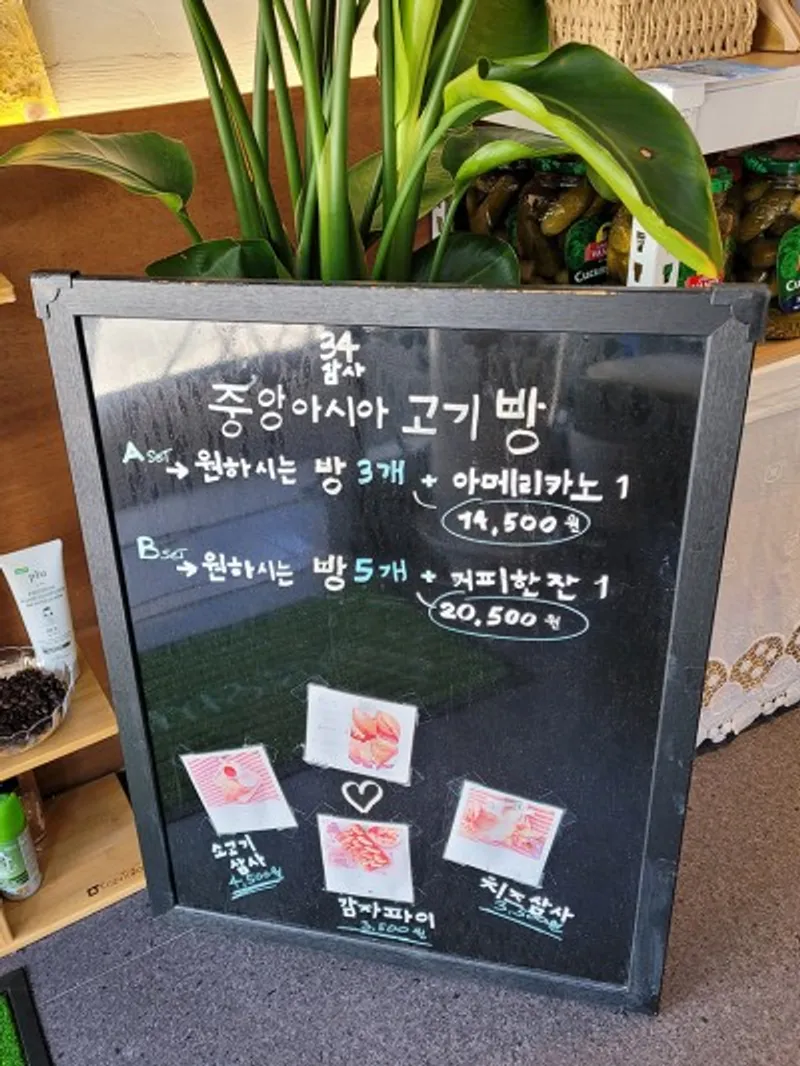 34
삼사
중앙아시아 고기 빵
A SET → 원하시는 빵 3개 + 아메리카노 1
14,500원
B SET → 원하시는 빵 5개 + 커피한잔 1
20,500원
소고기
삼사
4,500원
감자파이
3,500원
치즈삼사
3,500원
plu